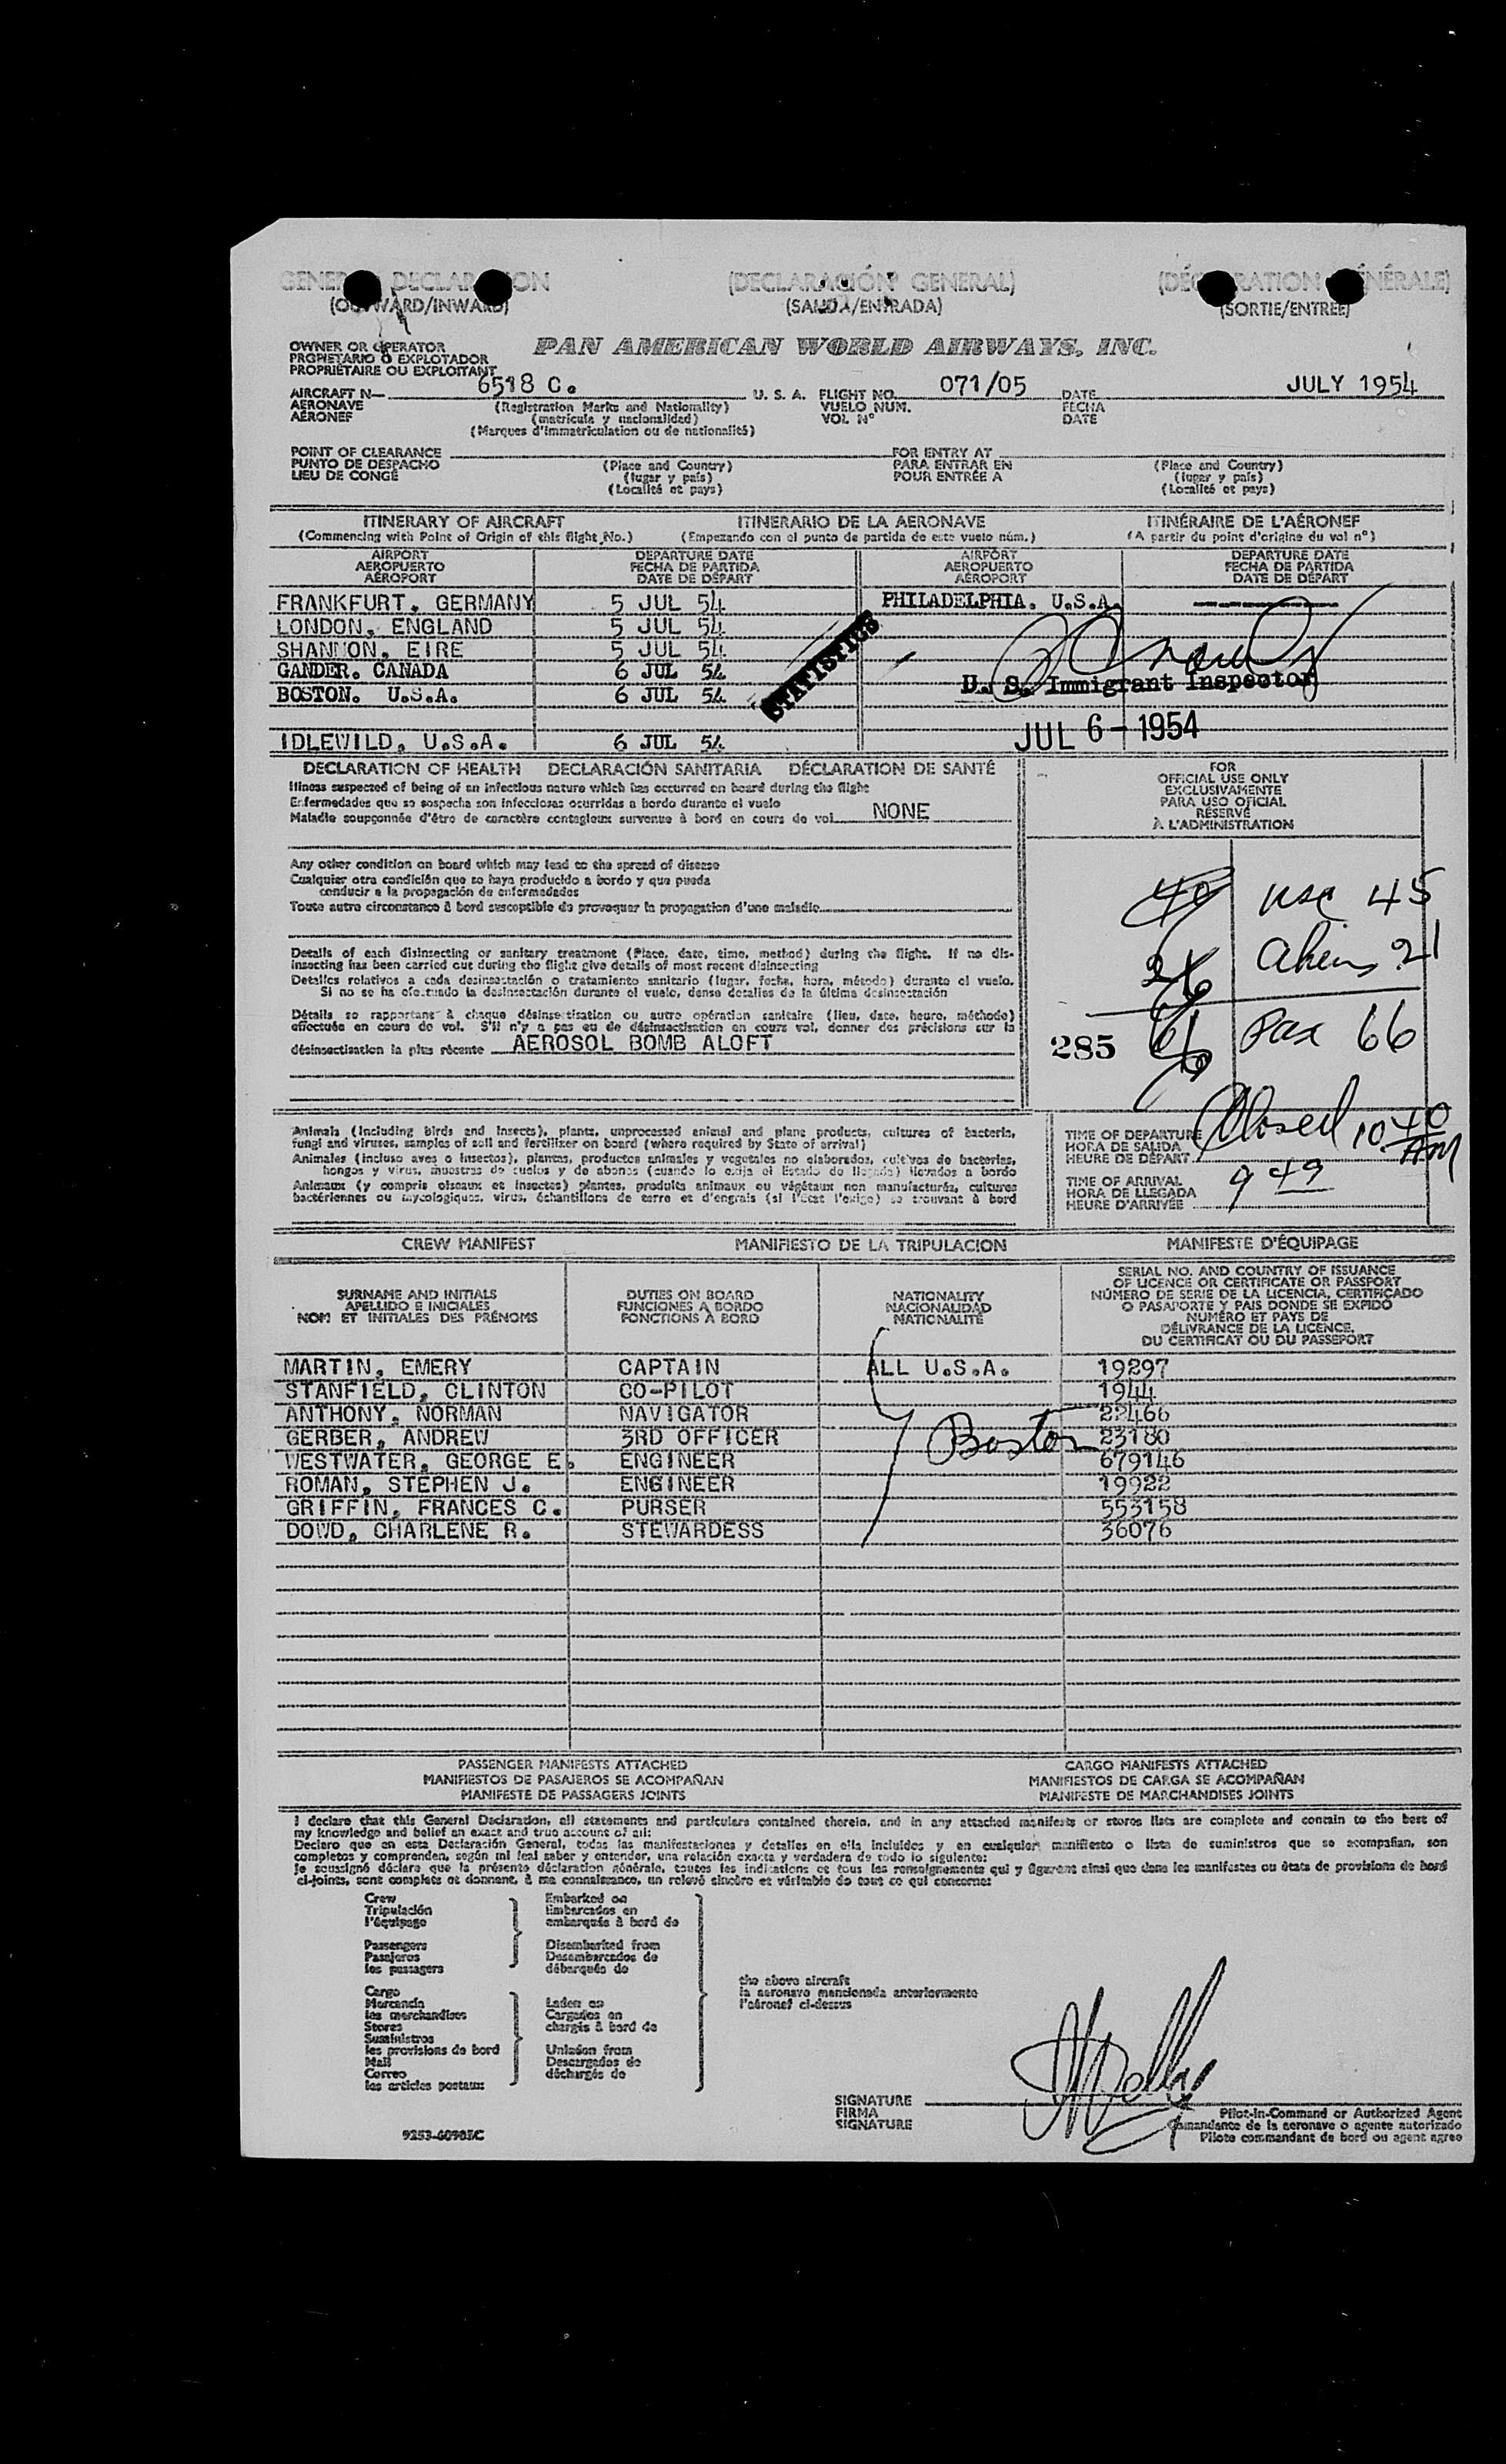 GENERAL DECLARATION (DECLARACIÓN GENERAL) (DÉCLARATION GÉNÉRALE)
(OUTWARD/INWARD) (SALIDA/ENTRADA) (SORTIE/ENTRÉE)
OWNER OR OPERATOR
PROPIETARIO O EXPLOTADOR
PROPRIÉTAIRE OU EXPLOITANT
PAN AMERICAN WORLD AIRWAYS, INC.
AIRCRAFT N— 6518 C. U. S. A. FLIGHT NO. 071/05 DATE JULY 1954
AERONAVE (Registration Marks and Nationality) VUELO NUM. FECHA
AÉRONEF (matrícula y nacionalidad) VOL Nº DATE
(Marques d'immatriculation ou de nationalité)
POINT OF CLEARANCE FOR ENTRY AT
PUNTO DE DESPACHO (Place and Country) PARA ENTRAR EN (Place and Country)
LIEU DE CONGÉ (lugar y país) POUR ENTRÉE A (lugar y país)
(Localité et pays) (Localité et pays)
ITINERARY OF AIRCRAFT ITINERARIO DE LA AERONAVE ITINÉRAIRE DE L'AÉRONEF
(Commencing with Point of Origin of this flight No.) (Empezando con el punto de partida de este vuelo núm.) (A partir du point d'origine du vol nº)
AIRPORT DEPARTURE DATE AIRPORT DEPARTURE DATE
AEROPUERTO FECHA DE PARTIDA AEROPUERTO FECHA DE PARTIDA
AÉROPORT DATE DE DÉPART AÉROPORT DATE DE DÉPART
FRANKFURT, GERMANY 5 JUL 54 PHILADELPHIA. U.S.A.
LONDON, ENGLAND 5 JUL 54
SHANNON, EIRE 5 JUL 54
GANDER. CANADA 6 JUL 54
BOSTON. U.S.A. 6 JUL 54
STATISTICS
U. S. Immigrant Inspector
IDLEWILD, U.S.A. 6 JUL 54
JUL 6 - 1954
DECLARATION OF HEALTH DECLARACIÓN SANITARIA DÉCLARATION DE SANTÉ
Illness suspected of being of an infectious nature which has occurred on board during the flight
Enfermedades que se sospecha son infecciosas ocurridas a bordo durante el vuelo
Maladie soupçonnée d'être de caractère contagieux survenue à bord en cours de vol NONE
Any other condition on board which may lead to the spread of disease
Cualquier otra condición que se haya producido a bordo y que pueda
conducir a la propagación de enfermedades
Toute autre circonstance à bord susceptible de provoquer la propagation d'une maladie
Details of each disinsecting or sanitary treatment (Place, date, time, method) during the flight. If no dis-
insecting has been carried out during the flight give details of most recent disinsecting
Detalles relativos a cada desinsectación o tratamiento sanitario (lugar, fecha, hora, método) durante el vuelo.
Si no se ha efectuado la desinsectación durante el vuelo, dense detalles de la última desinsectación
Détails se rapportant à chaque désinsectisation ou autre opération sanitaire (lieu, date, heure, méthode)
effectuée en cours de vol. S'il n'y a pas eu de désinsectisation en cours vol, donner des précisions sur la
désinsectisation la plus récente AEROSOL BOMB ALOFT
FOR
OFFICIAL USE ONLY
EXCLUSIVAMENTE
PARA USO OFICIAL
RÉSERVÉ
À L'ADMINISTRATION
40 USC 45
Aliens 21
285 66 Pax 66
Animals (including birds and insects), plants, unprocessed animal and plane products, cultures of bacteria,
fungi and viruses, samples of soil and fertilizer on board (where required by State of arrival)
Animales (incluso aves o insectos), plantas, productos animales y vegetales no elaborados, cultivos de bacterias,
hongos y virus, muestras de suelos y de abonos (cuando lo exija el Estado de llegada) llevados a bordo
Animaux (y compris oiseaux et insectes) plantes, produits animaux ou végétaux non manufacturés, cultures
bactériennes ou mycologiques, virus, échantillons de terre et d'engrais (si l'État l'exige) se trouvant à bord
TIME OF DEPARTURE Closed 10 40 AM
HORA DE SALIDA
HEURE DE DÉPART
TIME OF ARRIVAL 9 49
HORA DE LLEGADA
HEURE D'ARRIVÉE
CREW MANIFEST MANIFIESTO DE LA TRIPULACION MANIFESTE D'ÉQUIPAGE
SURNAME AND INITIALS
APELLIDO E INICIALES
NOM ET INITIALES DES PRÉNOMS
DUTIES ON BOARD
FUNCIONES A BORDO
FONCTIONS À BORD
NATIONALITY
NACIONALIDAD
NATIONALITÉ
SERIAL NO. AND COUNTRY OF ISSUANCE
OF LICENCE OR CERTIFICATE OR PASSPORT
NÚMERO DE SERIE DE LA LICENCIA, CERTIFICADO
O PASAPORTE Y PAIS DONDE SE EXPIDÓ
NUMÉRO ET PAYS DE
DÉLIVRANCE DE LA LICENCE,
DU CERTIFICAT OU DU PASSEPORT
MARTIN, EMERY CAPTAIN ALL U.S.A. 19297
STANFIELD, CLINTON CO-PILOT 1944
ANTHONY, NORMAN NAVIGATOR 22466
GERBER, ANDREW 3RD OFFICER Boston 23180
WESTWATER, GEORGE E. ENGINEER 679146
ROMAN, STEPHEN J. ENGINEER 19922
GRIFFIN, FRANCES C. PURSER 553158
DOWD, CHARLENE R. STEWARDESS 36076
PASSENGER MANIFESTS ATTACHED CARGO MANIFESTS ATTACHED
MANIFIESTOS DE PASAJEROS SE ACOMPAÑAN MANIFIESTOS DE CARGA SE ACOMPAÑAN
MANIFESTE DE PASSAGERS JOINTS MANIFESTE DE MARCHANDISES JOINTS
I declare that this General Declaration, all statements and particulars contained therein, and in any attached manifests or stores lists are complete and contain to the best of
my knowledge and belief an exact and true account of all:
Declaro que en esta Declaración General, todas las manifestaciones y detalles en ella incluídos y en cualquier manifiesto o lista de suministros que se acompañan, son
completos y comprenden, según mi leal saber y entender, una relación exacta y verdadera de todo lo siguiente:
Je soussigné déclare que la présente déclaration générale, toutes les indications et tous les renseignements qui y figurent ainsi que dans les manifestes ou états de provisions de bord
ci-joints, sont complets et donnent, à ma connaissance, un relevé sincère et véritable de tout ce qui concerne:
Crew Embarked on
Tripulación Embarcados en
l'équipage embarqués à bord de
Passengers Disembarked from
Pasajeros Desembarcados de
les passagers débarqués de
the above aircraft
la aeronave mencionada anteriormente
l'aéronef ci-dessus
Cargo
Mercancía Laden on
les marchandises Cargados en
Stores chargés à bord de
Suministros
les provisions de bord Unladen from
Mail Descargados de
Correo déchargés de
les articles postaux
SIGNATURE
FIRMA
SIGNATURE
Pilot-in-Command or Authorized Agent
Comandante de la aeronave o agente autorizado
Pilote commandant de bord ou agent agréé